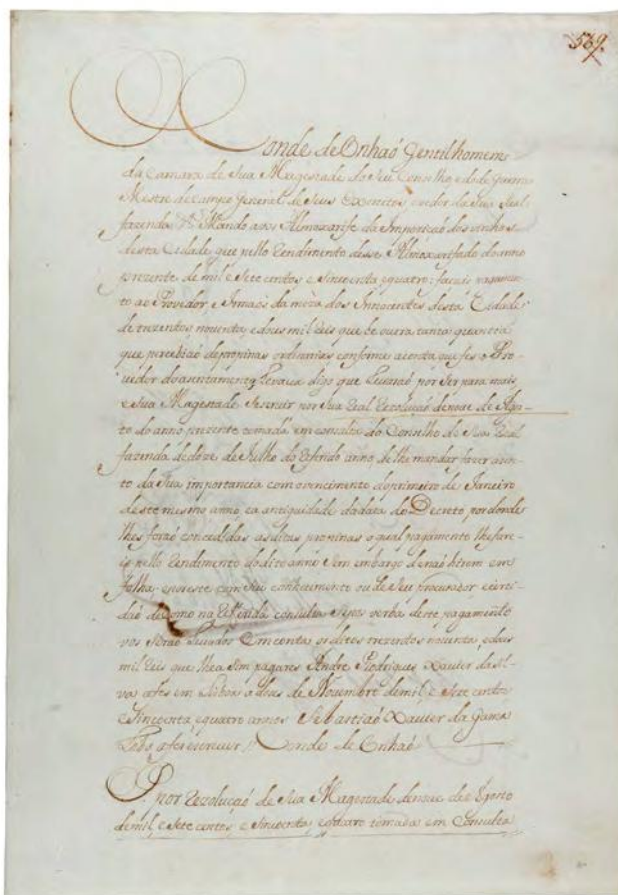 569
Conde de Unhaó Gentilhomem
da Camara de Sua Magestade do Seu Conselho, e do de guerra
Mestre de campo General de Seus Exercitos e védor da Sua Real
fazenda Mando a vos Almoxarife da Impoziçaó dos vinhos
desta Cidade que pello Rendimento desse Almoxarifado do anno
prezente de mil e sete centos e sincoenta e quatro: façais pagamen-
to ao Provedor, e Irmaós da meza dos Innocentes desta Cidade
de trezentos noventa, e dous mil reis que he outra tanta quantia
que percebiaó de propinas ordinarias conforme a conta que fes o Pro-
vedor do asentamento levava digo que Levavaó por Ser para mais
e Sua Magestade Se servir por Sua Real Rezoluçaó de nove de Agos-
to do anno prezente tomada em consulta do Conselho de Sua Real
fazenda de doze de Julho do referido anno, de lhe mandar fazer asen-
to da Sua importancia com o vencimento do primeiro de Janeiro
deste mesmo anno, e a antiguidade da data do Decreto, por donde
lhes foraó concedidas as ditas propinas o qual pagamento lhe fare-
is pello Rendimento do dito anno Sem embargo de naó hirem em
folha e por este com Seu conhecimento ou de Seu procurador e certi-
daó de como na Referida consulta Se pos verba deste pagamento
vos Seraó Levados Em conta os ditos trezentos noventa, e dous
mil reis que lhe asim pagares Andre Rodrigues Xavier da Sil-
va a fes em Lisboa a dous de Novembro de mil, e Sete centos
e Sincoenta, e quatro annos Sebastiaó Xavier da Gama
Lobo a fes escrever / Conde de Unhaó
Por Rezoluçaó de Sua Magestade de nove de Agosto
de mil, e Sete centos, e Sincoenta, e quatro tomada em Consulta